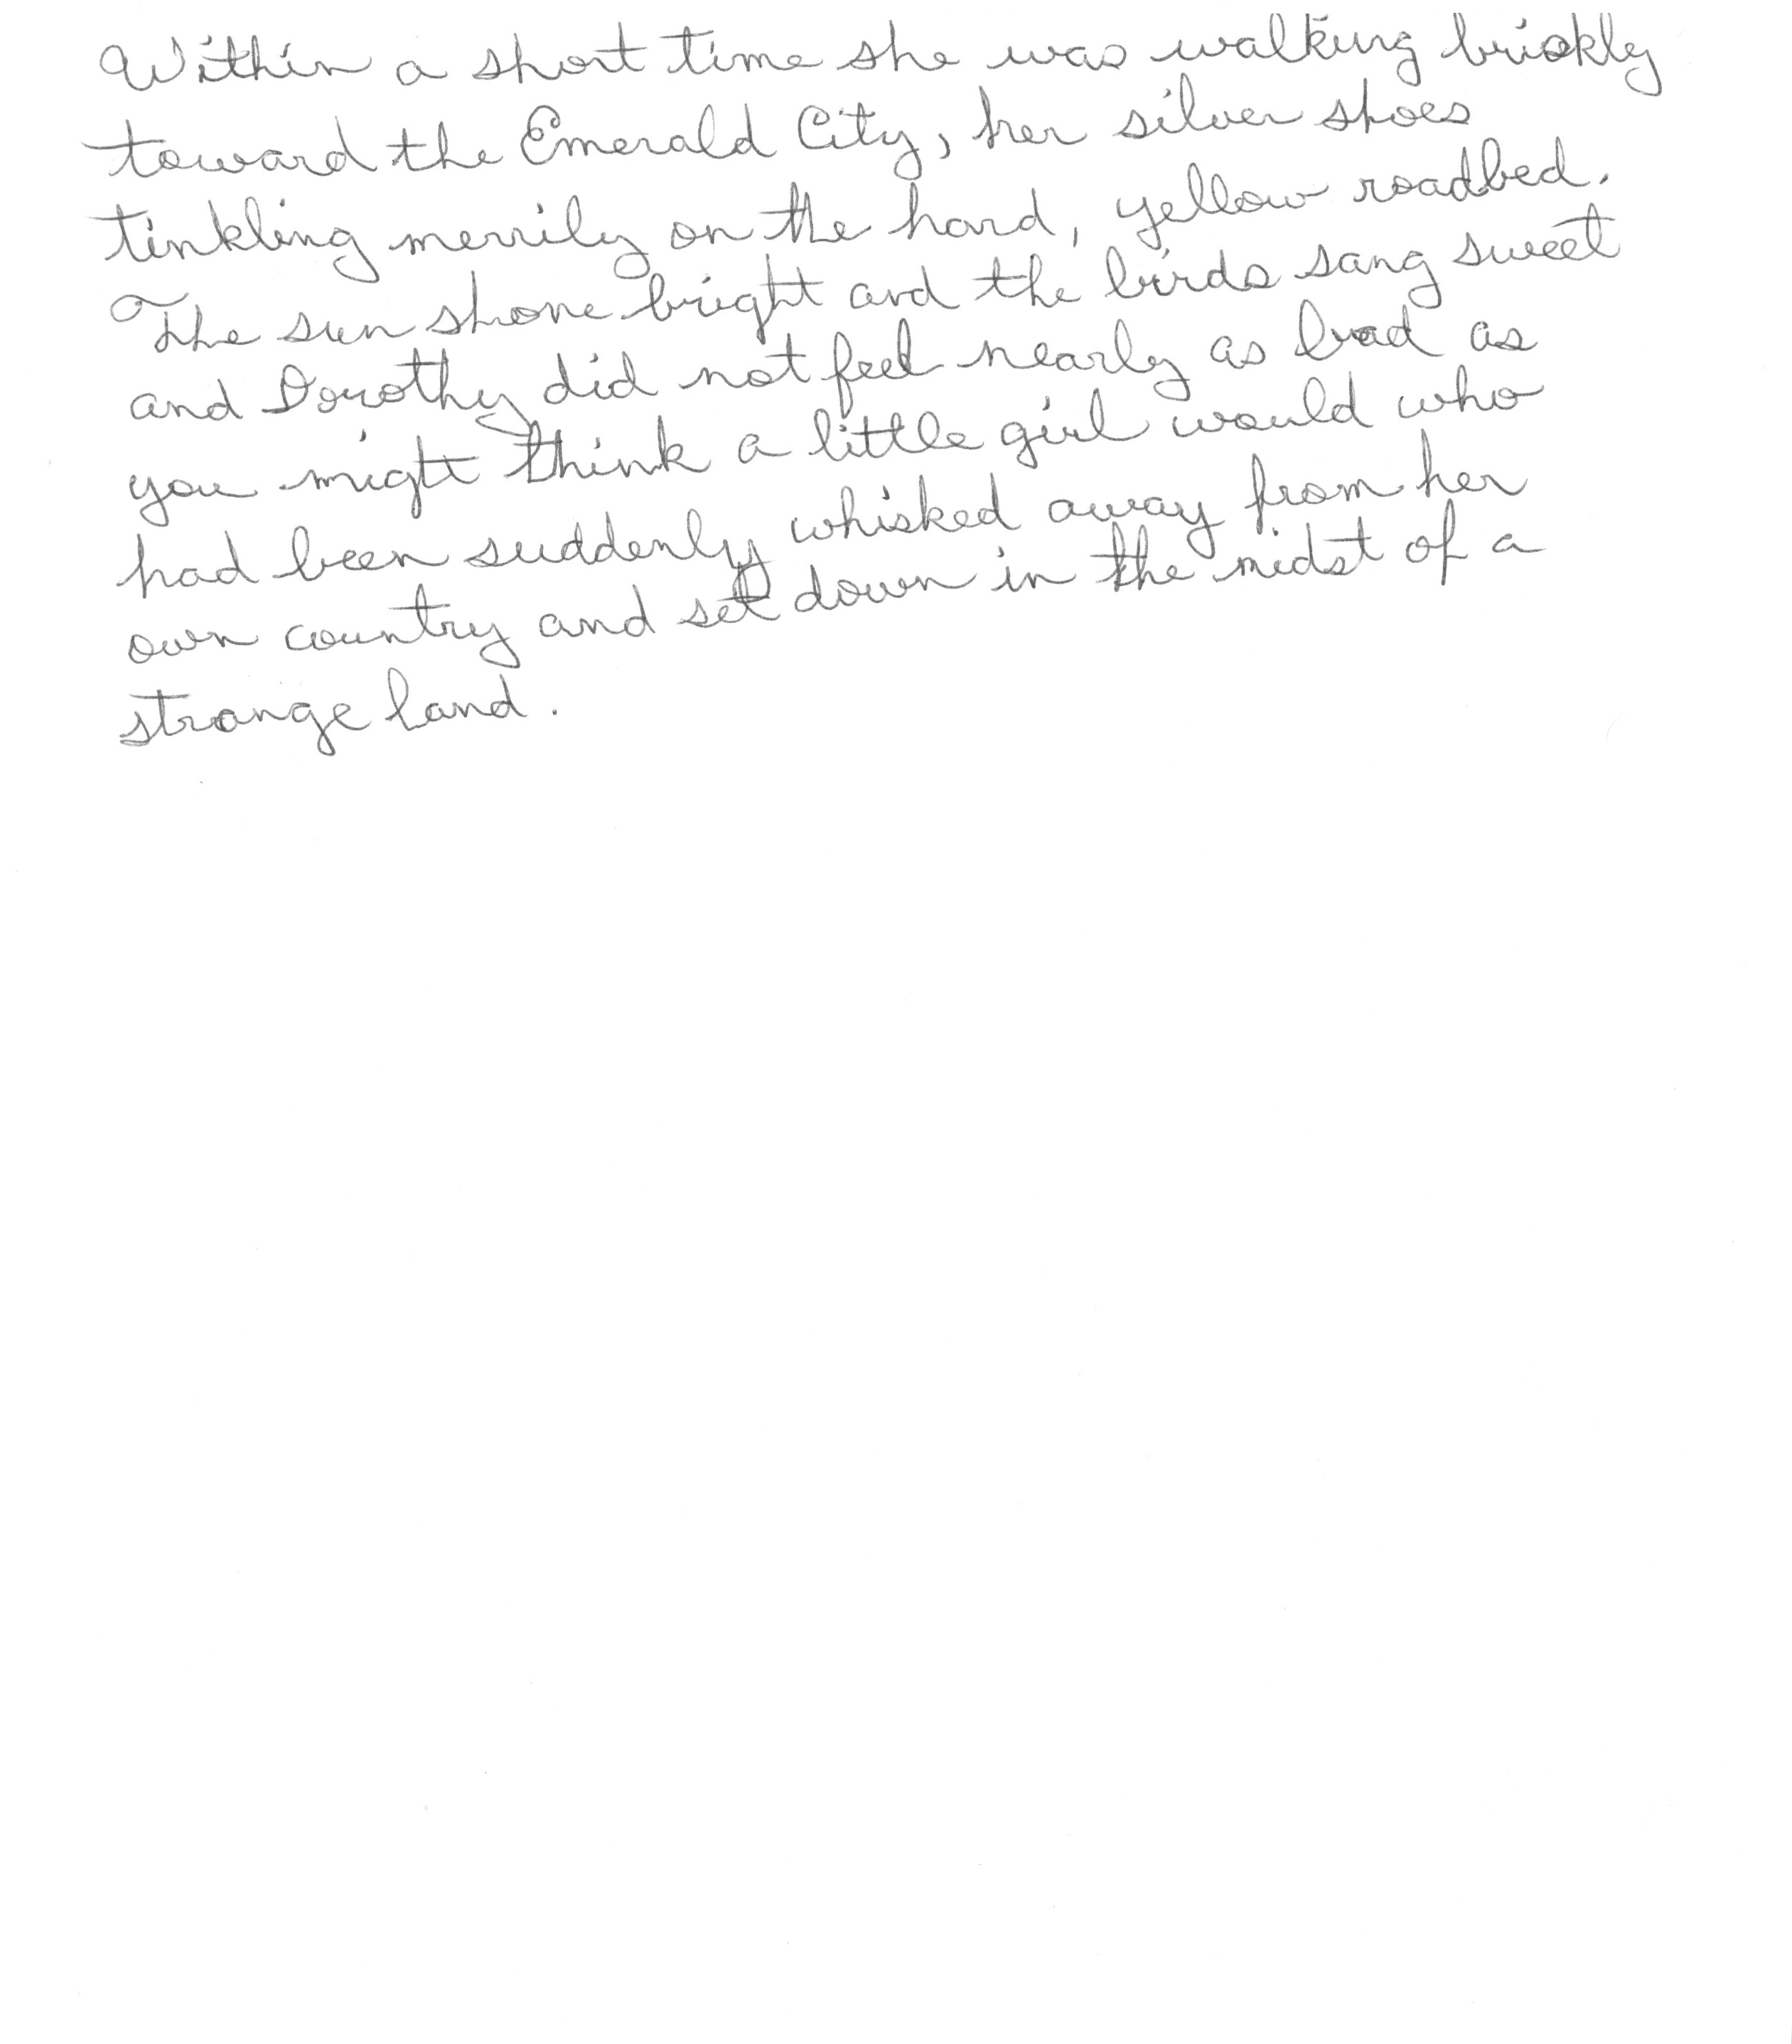 Within a short time she was walking briskly
toward the Emerald City, her silver shoes
tinkling merrily on the hard, yellow roadbed.
The sun shone bright and the birds sang sweet
and Dorothy did not feel nearly as bad as
you might think a little girl would who
had been suddenly whisked away from her
own country and set down in the midst of a
strange land.